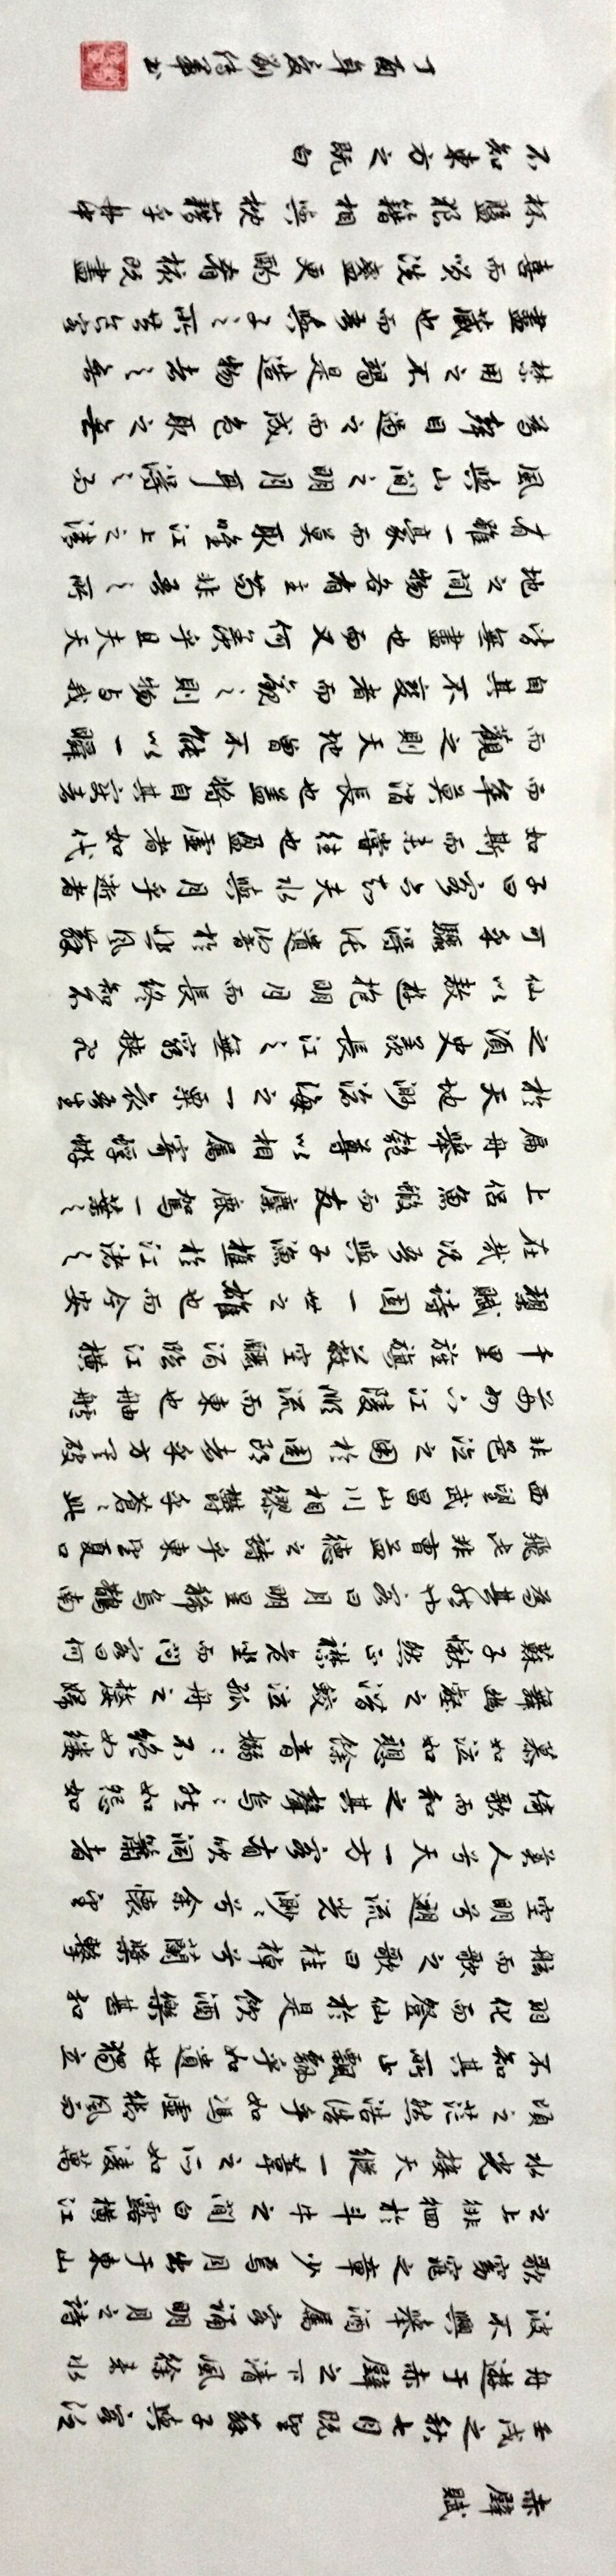 赤壁賦
壬戌之秋七月既望蘇子與客泛
舟遊于赤壁之下清風徐來水
波不興舉酒屬客誦明月之詩
歌窈窕之章少焉月出于東山
之上徘徊於斗牛之間白露橫江
水光接天縱一葦之所如凌萬
頃之茫然浩浩乎如馮虛御風而
不知其所止飄飄乎如遺世獨立
羽化而登仙於是飲酒樂甚扣
舷而歌之歌曰桂棹兮蘭槳擊
空明兮溯流光渺渺兮余懷望
美人兮天一方客有吹洞簫者
倚歌而和之其聲嗚嗚然如怨如
慕如泣如訴餘音嫋嫋不絕如縷
舞幽壑之潛蛟泣孤舟之嫠婦
蘇子愀然正襟危坐而問客曰何
為其然也客曰月明星稀烏鵲南
飛此非曹孟德之詩乎東望夏口
西望武昌山川相繆鬱乎蒼蒼此
非孟德之困於周郎者乎方其破
荊州下江陵順流而東也舳艫
千里旌旗蔽空釃酒臨江橫
槊賦詩固一世之雄也而今安
在哉況吾與子漁樵於江渚之
上侶魚蝦而友麋鹿駕一葉之
扁舟舉匏尊以相屬寄蜉蝣
於天地渺滄海之一粟哀吾生
之須臾羨長江之無窮挾飛
仙以遨遊抱明月而長終知不
可乎驟得託遺響於悲風蘇
子曰客亦知夫水與月乎逝者
如斯而未嘗往也盈虛者如代
而卒莫消長也蓋將自其變者
而觀之則天地曾不能以一瞬
自其不變者而觀之則物與我
皆無盡也而又何羨乎且夫天
地之間物各有主苟非吾之所
有雖一毫而莫取惟江上之清
風與山間之明月耳得之而
為聲目遇之而成色取之無
禁用之不竭是造物者之無
盡藏也而吾與子之所共客
喜而笑洗盞更酌肴核既盡
杯盤狼籍相與枕藉乎舟中
不知東方之既白
丁酉年夏劉書